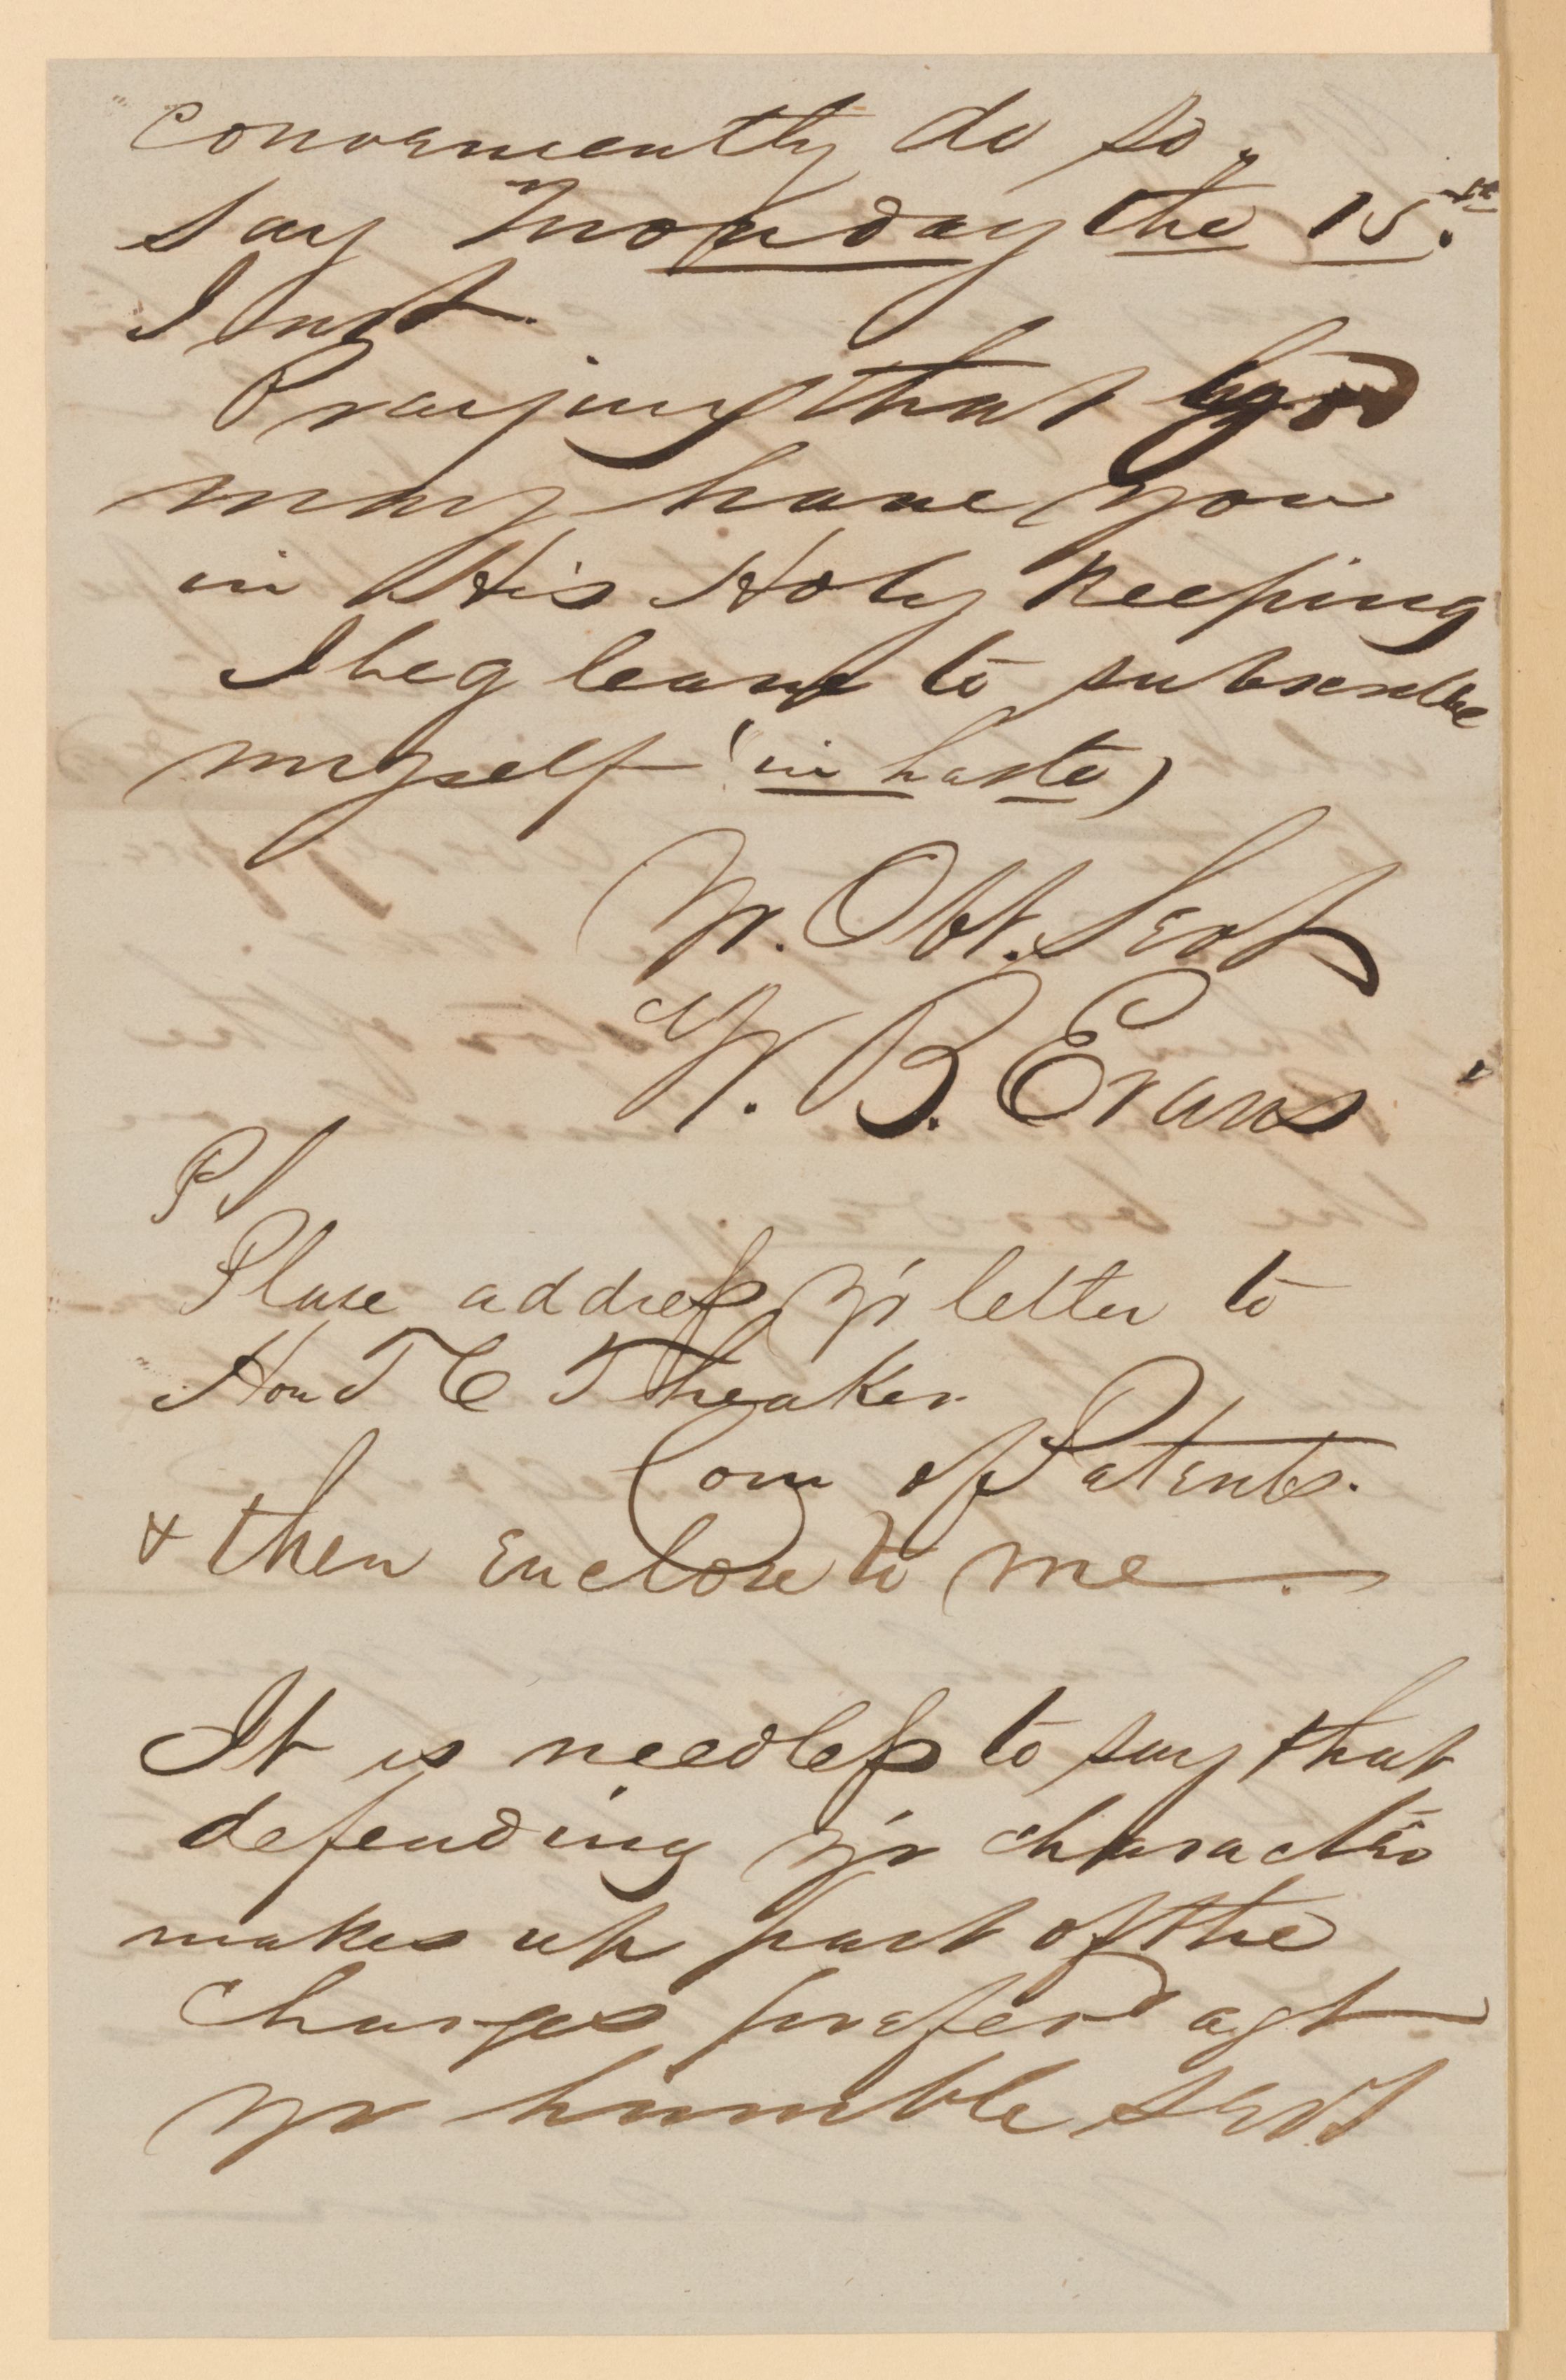 conveniently do so,
say Monday the 15.th
Inst.
Praying that God
may have you
in His Holy Keeping
I beg leave to subscribe
myself (in haste)
Yr. Obt. Servt
W. B. Evans
PS
Please address yr letter to
Hon T C Theaker
Com of Patents.
& then enclose to me.
It is needless to say that
defending yr character
makes up part of the
charges prefer'd agt
yr humble servt